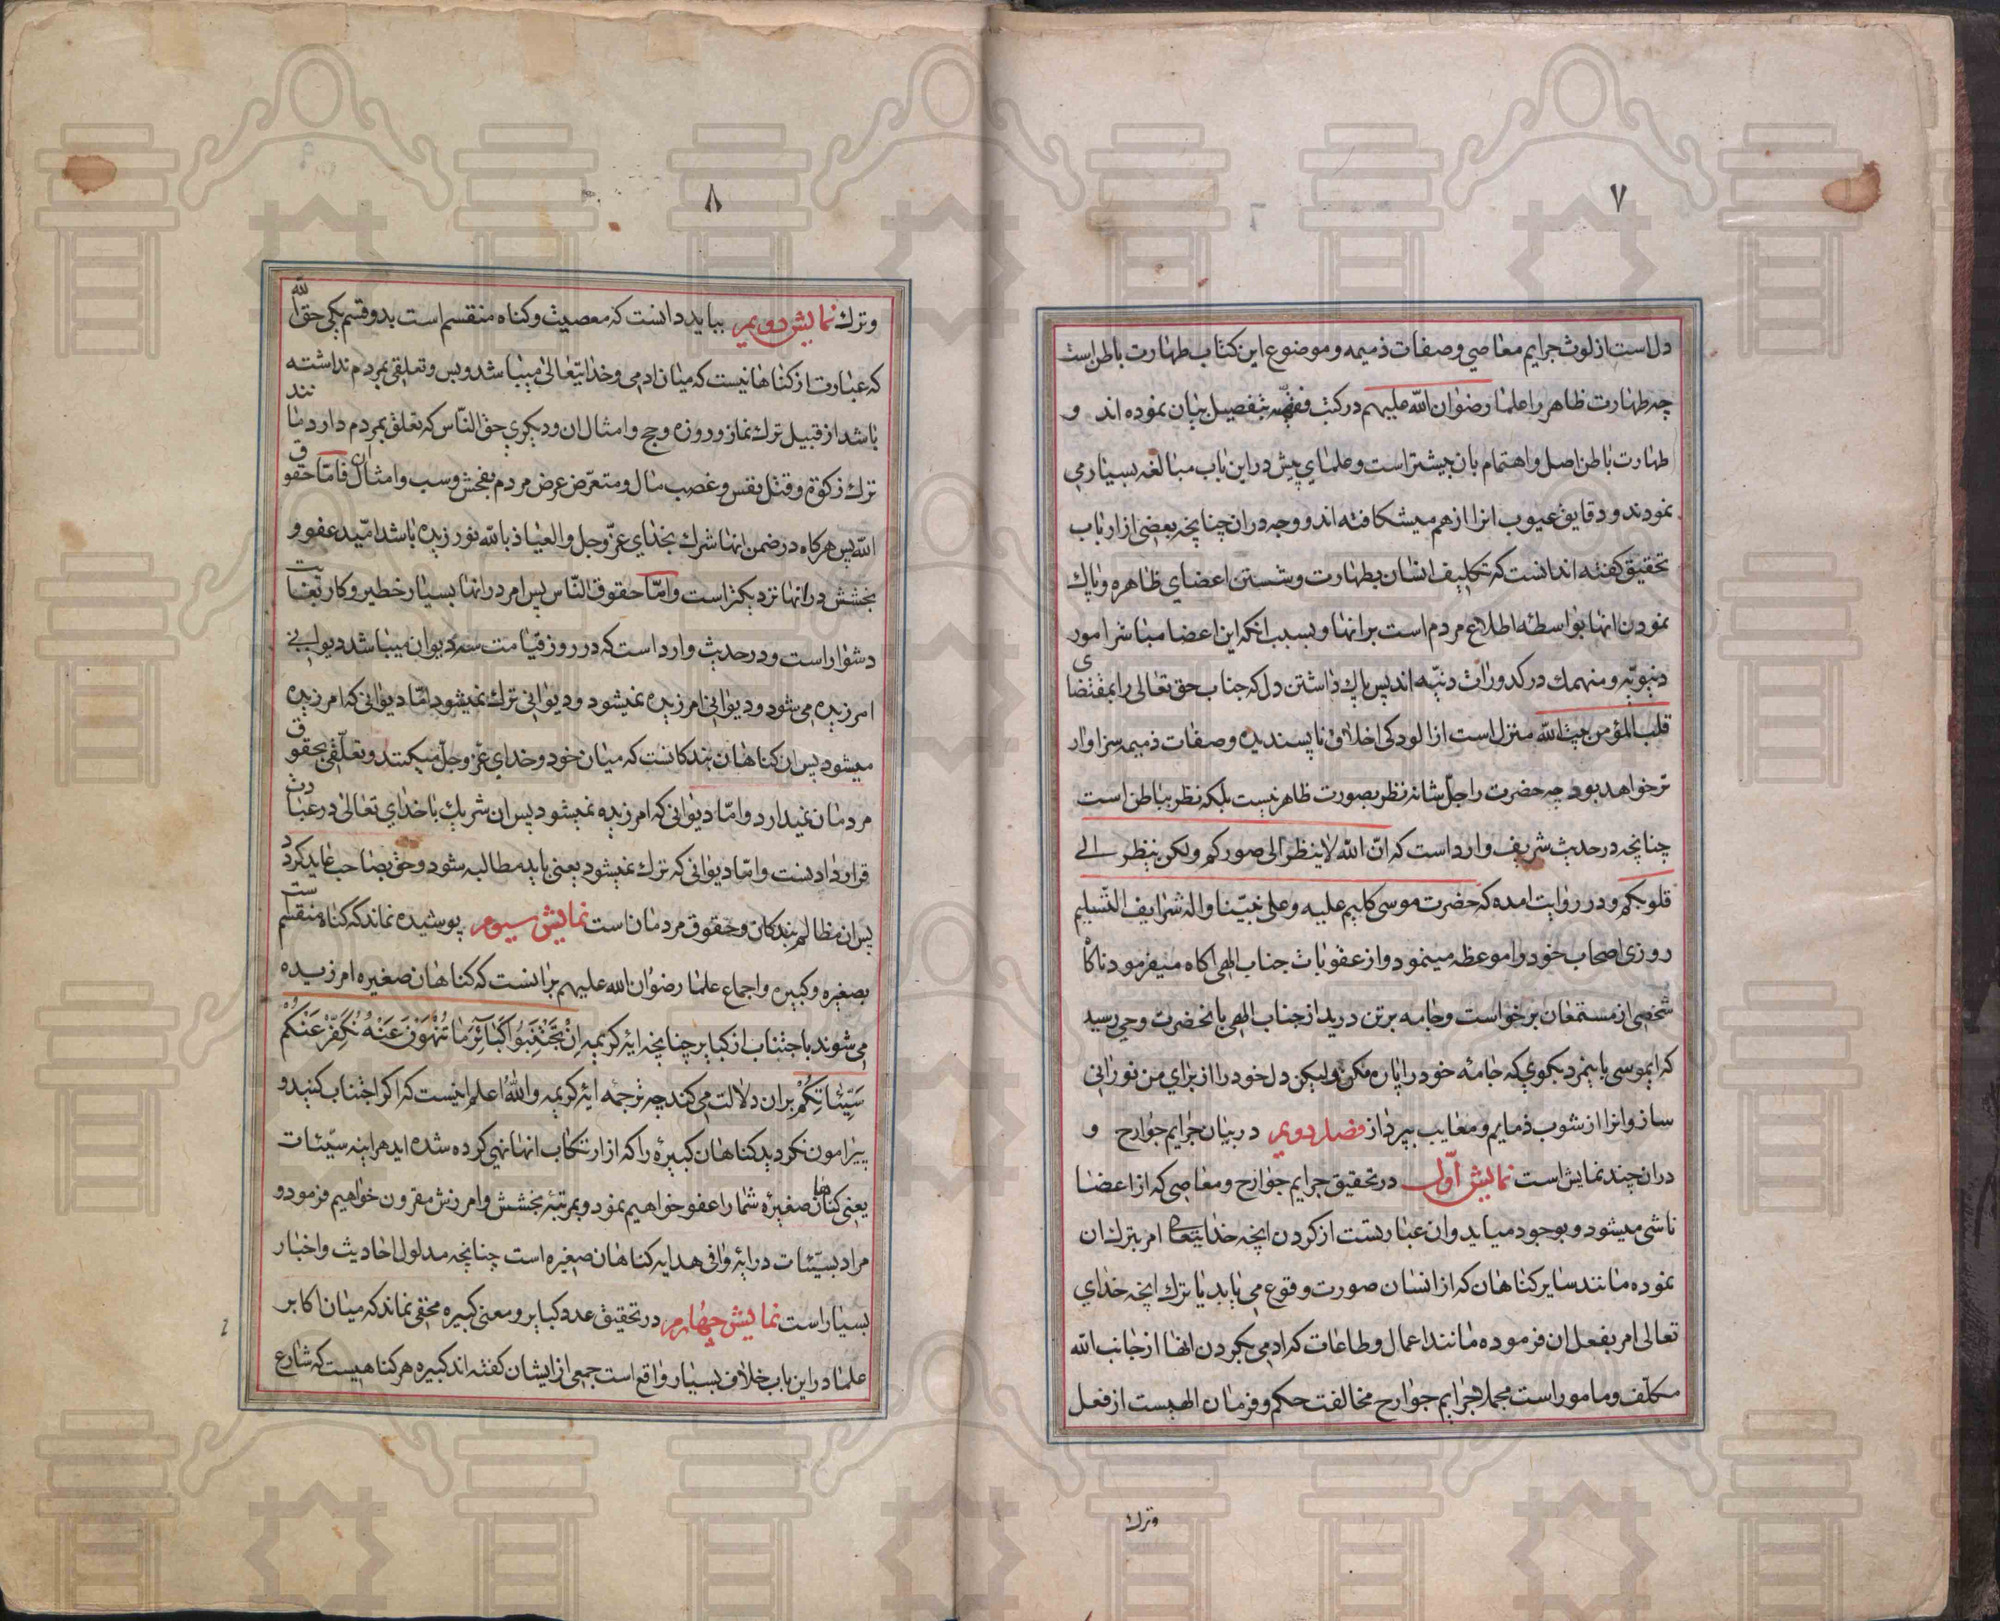 ۷
دل است از لوث جرایم معاصی و صفات ذمیمه و موضوع این کتاب طهارت باطن است
چه طهارت ظاهر را علما رضوان الله علیهم در کتب فقهیّه بتفصیل بیان نموده اند و
طهارت باطن اصل و اهتمام بان بیشتر است و علمای پیش در این باب مبالغه بسیار می
نمودند و دقایق عیوب انرا از هم میشکافته اند و وجه دران چنانچه بعضی از ارباب
تحقیق گفته اند انست که تکلیف انسان بطهارت و شستن اعضای ظاهره و پاک
نمودن انها بواسطه اطلاع مردم است بر انها و بسبب انکه این اعضا مباشر امور
دنیویّه و منهمک در کدورات دنیّه اند پس پاک داشتن دل که جناب حق تعالی را بمقتضای
قلب المؤمن بیت الله منزل است از الودکی اخلاق ناپسندیده و صفات ذمیمه سزاوار
تر خواهد بود چه حضرت را جلّ شانه نظر بصورت ظاهر نیست بلکه نظر بباطن است
چنانچه در حدیث شریف وارد است که انّ الله لا ینظر الی صورکم ولکن ینظر الی
قلوبکم و در روایت امده که حضرت موسی کلیم علیه و علی نبیّنا و اله شرایف التسلیم
روزی اصحاب خود را موعظه مینمود و از عقوبات جناب الهی اکاه میفرمود ناکاه
شخصی از مستمعان برخواست و جامه بر تن درید از جناب الهی بانحضرت وحی رسید
که ایموسی باینمرد بکوی که جامه خود را پاره مکن ولیکن دل خود را از برای من نورانی
ساز و انرا از شوب ذمایم و معایب بپرداز فصل دویم در بیان جرایم جوارح و
دران چند نمایش است نمایش اوّل در تحقیق جرایم جوارح و معاصی که از اعضا
ناشی میشود و بوجود میاید و ان عبارتست از کردن انچه خدایتعالی امر بترک ان
نموده مانند سایر کناهان که از انسان صورت وقوع می یابد یا ترک انچه خدای
تعالی امر بفعل ان فرموده مانند اعمال و طاعات که ادمی بکردن انها از جانب الله
مکلّف و مامور است مجملا جرایم جوارح مخالفت حکم و فرمان الهیست از فعل
و ترک
۸
و ترک نمایش دویم بباید دانست که معصیت و کناه منقسم است بدو قسم یکی حق الله
که عبارت از کناهانیست که میان ادمی و خدایتعالی میباشد و بس و تعلقی بمردم نداشته
باشد از قبیل ترک نماز و روزه و حج و امثال ان و دیکری حق النّاس که تعلق بمردم دارد مانند
ترک زکوة و قتل نفس و غصب مال و متعرّض عرض مردم بفحش و سب و امثال ان فامّا حقوق
الله پس هرکاه در ضمن انها شرک بخدای عزّ و جل و العیاذ بالله نورزیده باشد امّید عفو و
بخشش در انها نزدیکتر است و امّا حقوق النّاس پس امر در انها بسیار خطیر و کار بغایت
دشوار است و در حدیث وارد است که در روز قیامت سه دیوان میباشد دیوانی
امرزیده می شود و دیوانی امرزیده نمیشود و دیوانی ترک نمیشود امّا دیوانی که امرزیده
میشود پس ان کناهان بندکانست که میان خود و خدای عزّ و جلّ میکنند و تعلّقی بحقوق
مردمان نمیدارد و امّا دیوانی که امرزیده نمیشود پس ان شریک با خدای تعالی در عبادت
قرار دادنست و امّا دیوانی که ترک نمیشود یعنی باید مطالبه شود و حق بصاحب عاید کردد
پس ان مظالم بندکان و حقوق مردمان است نمایش سیوم پوشیده نماند که کناه منقسم است
بصغیره و کبیره و اجماع علما رضوان الله علیهم برانست که کناهان صغیره امرزیده
می شوند باجتناب از کبایر چنانچه ایه کریمه اِنْ تَجْتَنِبُوا کَبائِرَ ما تُنْهَوْنَ عَنْهُ نُکَفِّرْ عَنْکُمْ
سَیِّئاتِکُمْ بران دلالت می کند چه ترجمه ایه کریمه و الله اعلم اینست که اکر اجتناب کنید و
پیرامون نکردید کناهان کبیره را که از ارتکاب انها نهی کرده شده اید هراینه سیّئات
یعنی کناهان صغیره شما را عفو خواهیم نمود و بمرتبه بخشش و امرزش مقرون خواهیم فرمود و
مراد بسیّئات در ایه وافی هدایه کناهان صغیره است چنانچه مدلول احادیث و اخبار
بسیار است نمایش چهارم در تحقیق عدد کبایر و معنی کبیره مخفی نماند که میان اکابر
علما در این باب خلاف بسیار واقع است جمعی از ایشان کفته اند کبیره هر کناهیست که شارع